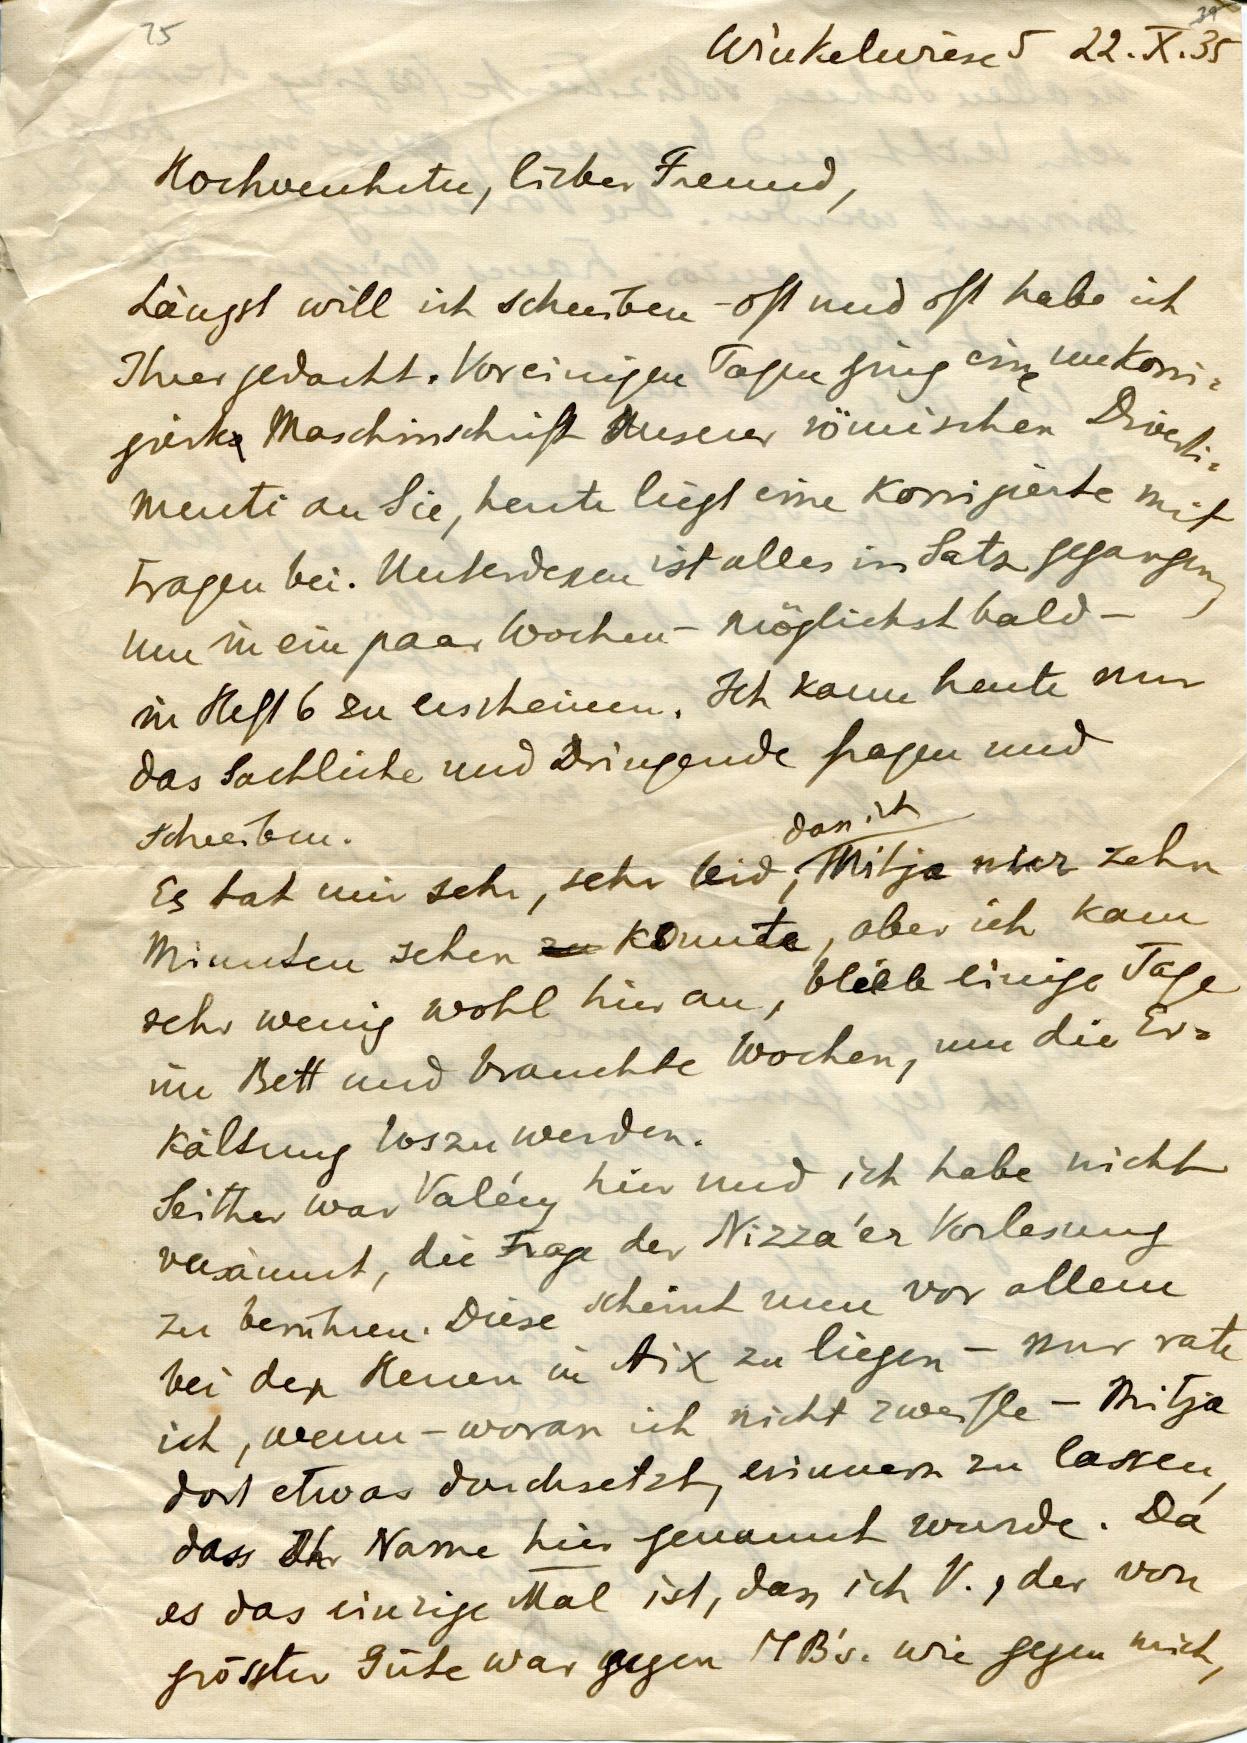 75
39
Winkelwiese 5 22.X.35
Hochverehrter, lieber Freund,
Längst will ich schreiben – oft und oft habe ich
Ihrer gedacht. Vor einigen Tagen ging eine unkorri=
gierte Maschinschrift Unserer römischen Diverti=
menti an Sie, heute liegt eine korrigierte mit
Fragen bei. Unterdessen ist alles in Satz gegangen,
um in ein paar Wochen – möglichst bald –
in Heft 6 zu erscheinen. Ich kann heute nur
das Sachliche und Dringende fragen und
schreiben.
dass ich
Es tat mir sehr, sehr leid, Mitja nur zehn
Minuten sehen zu konnte, aber ich kam
sehr wenig wohl hier an, blieb einige Tage
im Bett und brauchte Wochen, um die Er=
kältung loszuwerden.
Seither war Valéry hier und ich habe nicht
versäumt, die Frage der Nizza'er Vorlesung
zu berühren. Diese scheint nun vor allem
bei den Herren in Aix zu liegen – nur rate
ich, wenn – woran ich nicht zweifle – Mitja
dort etwas durchsetzt, erinnern zu lassen,
dass Ihr Name hier genannt wurde. Da
es das einzige Mal ist, dass ich V., der von
grösster Güte war gegen MB's. wie gegen mich,